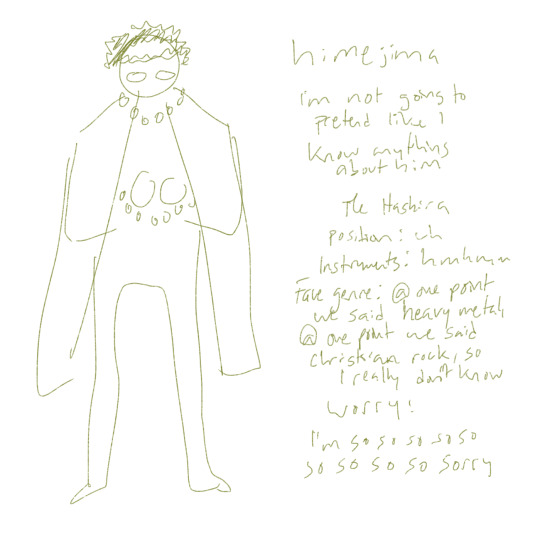 himejima
I'm not going to
pretend like I
know anything
about him
The Hashira
position: uh
Instruments: hmhmhm
Fave genre: @ one point
we said heavy metal,
@ one point we said
christian rock, so
I really don't know
worry!
I'm so so so so so
so so so so so sorry